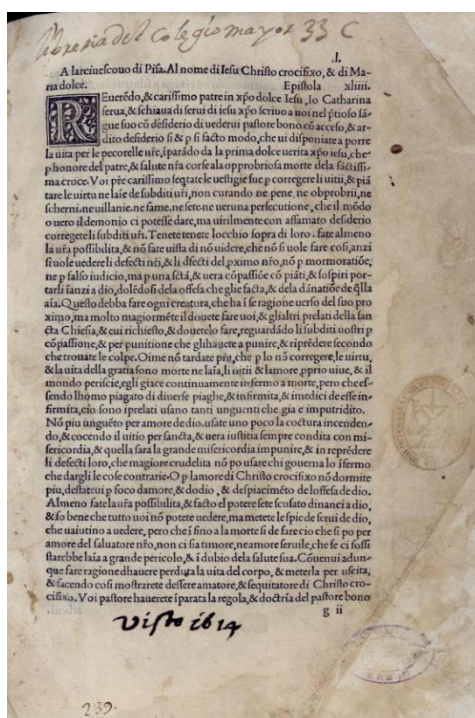 libreria del Colegio mayor 33 C
.l.
A larciuescouo di Pisa. Al nome di Iesu Christo crocifixo, & di Ma-
ria dolce. Epistola xliiii.
REuerēdo, & carissimo patre in xp̄o dolce Iesu, Io Catharina
serua, & schiaua di serui di iesu xp̄o scriuo a uoi nel p̄tioso sā-
gue suo cō desiderio di uederui pastore bono cō acceso, & ar-
dito desiderio si & p si facto modo, che ui disponiate a porre
la uita per le pecorelle ur̄e, īparādo da la prima dolce uerita xp̄o iesu, che
p honore del patre, & salute nr̄a corse ala opprobriosa morte dela sactissi-
ma croce. Voi pr̄e carissimo seqtate le uestigie sue p corregere li uitii, & piā
tare le uirtu ne laīe de subditi ur̄i, non curando ne pene, ne obprobrii, ne
scherni ne uillanie, ne fame, ne sete ne ueruna persecutione, che il mōdo
o uero il demonio ci potesse dare, ma uirilmente con affamato desiderio
corregete li subditi ur̄i. Tenete tenete locchio sopra di loro. fate almeno
la ur̄a possibilita, & nō fate uista di nō uidere, che nō si uole fare cosi, anzi
si uole uedere li defecti nr̄i, & li dfecti del pximo nr̄o, nō p mormoratiōe,
ne p falso iudicio, ma p una sctā, & uera cōpassiōe cō piāti, & sospiri por-
tarli īanzi a dio, dolēdosi dela offesa che gli e facta, & dela dānatiōe de qlla
aīa. Questo debba fare ogni creatura, che ha ī se ragione uerso del suo pro
ximo, ma molto magiormēte il douete fare uoi, & gli altri prelati della san
cta Chiesia, & eui richiesto, & douetelo fare, reguardādo li subditi uostri p
cōpassione, & per punitione che gli hauete a punire, & riprēdere secondo
che trouate le colpe. Oime nō tardate piu, che p lo nō corregere, le uirtu,
& la uita della gratia sono morte ne laīa, li uitii & lamore pprio uiue, & il
mondo periscie, egli giace continuamente infermo a morte, pero che es-
sendo lhomo piagato di diuerse piaghe, & infirmita, & i medici de esse in-
firmita, cio sono i prelati usano tanti unguenti che gia e imputridito.
Nō piu unguēto per amore de dio. usate uno poco la coctura incenden-
do, & cocendo il uitio per sancta, & uera iustitia sempre condita con mi-
sericordia, & quella sara la grande misericordia impunire, & in reprēdere
li defecti loro, che magiore crudelita nō po usare chi gouerna lo īfermo
che dargli le cose contrarie. O p lamore di Christo crocifixo nō dormite
piu, destateui p foco damore, & dodio, & despiacimēto de lossesa de dio.
Almeno fate la ur̄a possibilita, & facto el potere sete scusato dinanci a dio,
& so bene che tutto uoi nō potete uedere, ma metete le spie de serui de dio,
che uaiutino a uedere, pero che ī fino a la morte si de fare cio che si po per
amore del saluatore nr̄o, non ci sia timore, ne amore seruile, che se ci fossi
starebbe laīa a grande pericolo, & ī dubio dela salute sua. Cōuenui adun-
que fare ragione dhauere perduta la uita del corpo, & meterla per uscita,
& facendo cosi mostrarete dessere amatore, & sequitatore di Christo cro-
cifixo. Voi pastore hauerete īparata la regola, & doctrīa del pastore bono
g ii
visto 1614
239.